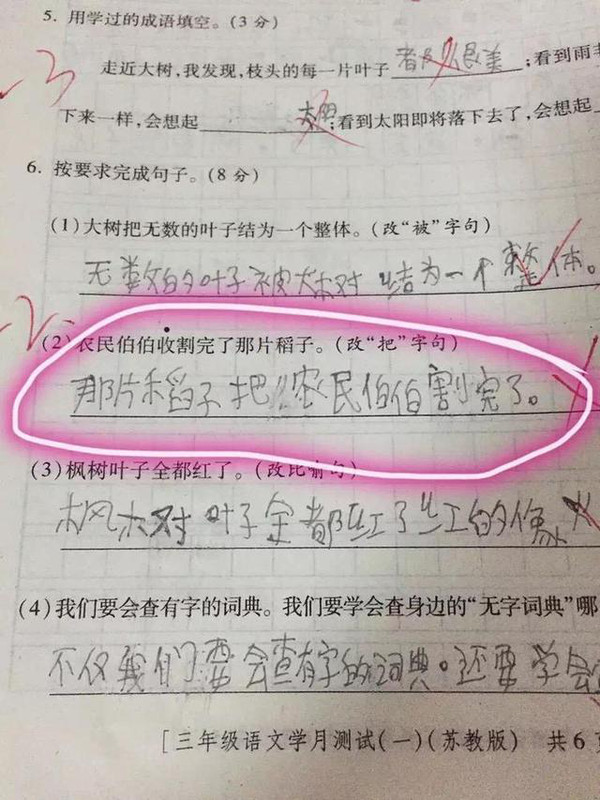 5. 用学过的成语填空。(3分)
-3
走近大树,我发现,枝头的每一片叶子 很美 ;看到雨
下来一样,会想起 ;看到太阳即将落下去了,会想起
6. 按要求完成句子。(8分)
(1)大树把无数的叶子结为一个整体。(改“被”字句)
无数的叶子被大树结为一个整体。
-2
(2)农民伯伯收割完了那片稻子。(改“把”字句)
那片稻子把农民伯伯割完了。
(3)枫树叶子全都红了。(改比喻句)
枫树叶子全都红了红的像
(4)我们要会查有字的词典。我们要学会查身边的“无字词典”哪
不仅我们要会查有字的词典。还要学会
[三年级语文学月测试(一)(苏教版) 共6页